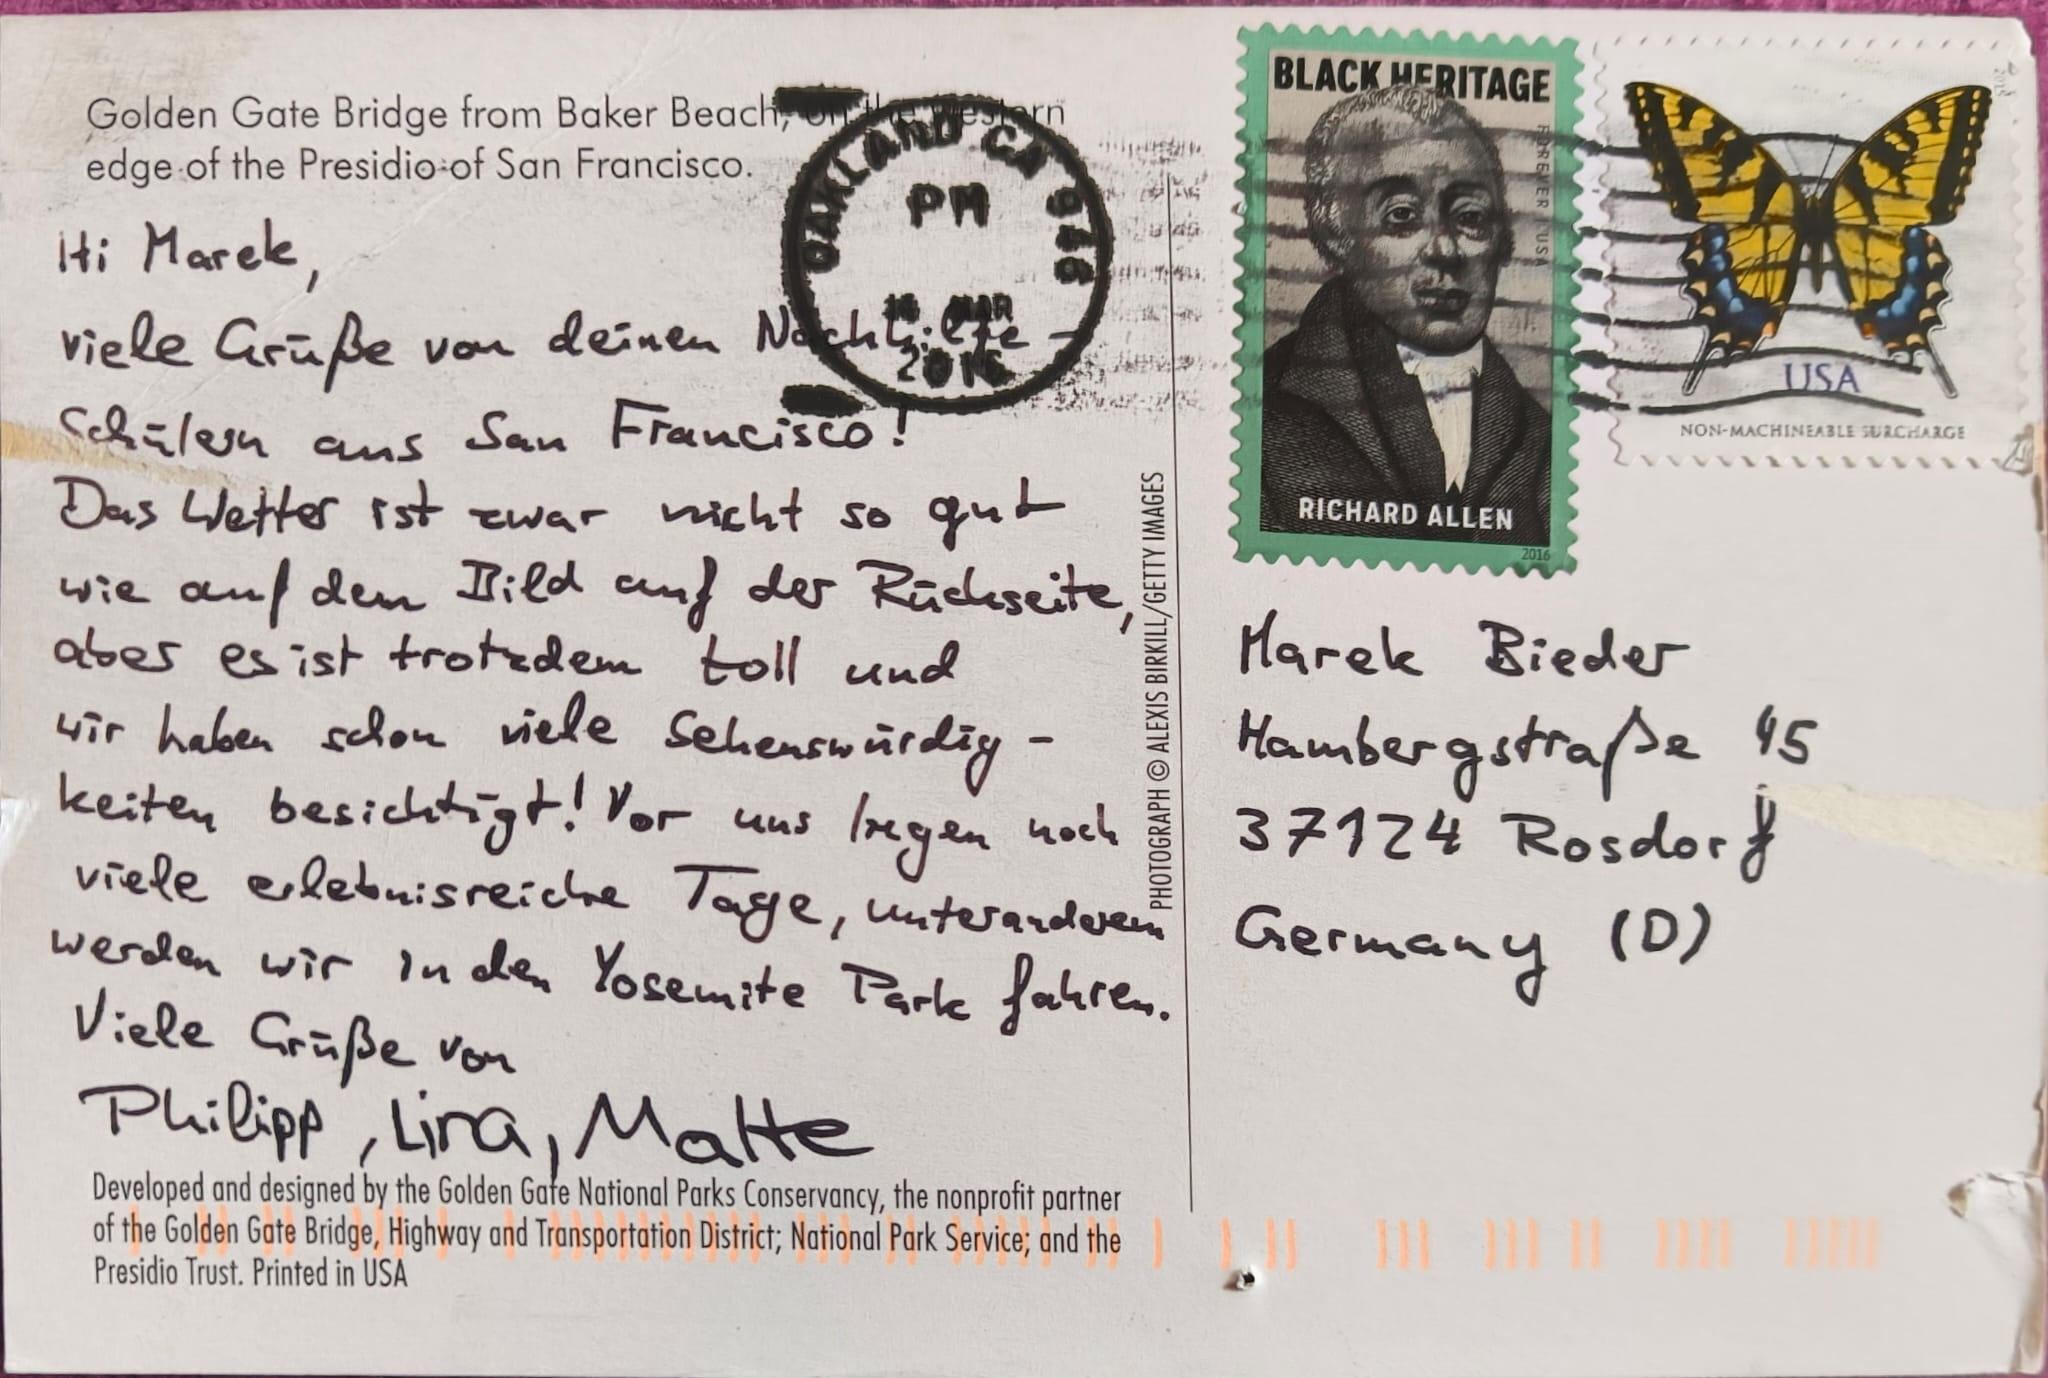 Golden Gate Bridge from Baker Beach, on the Western
edge of the Presidio of San Francisco.
Hi Marek,
viele Grüße von deinen Nachhilfe-
Schülern aus San Francisco!
Das Wetter ist zwar nicht so gut
wie auf dem Bild auf der Rückseite,
aber es ist trotzdem toll und
wir haben schon viele Sehenswürdig-
keiten besichtigt! Vor uns liegen noch
viele erlebnisreiche Tage, unteranderem
werden wir in den Yosemite Park fahren.
Viele Grüße von
Philipp, Lina, Malte
Developed and designed by the Golden Gate National Parks Conservancy, the nonprofit partner
of the Golden Gate Bridge, Highway and Transportation District; National Park Service; and the
Presidio Trust. Printed in USA
PHOTOGRAPH © ALEXIS BIRKILL/GETTY IMAGES
OAKLAND CA 946
PM
MAR
2016
BLACK HERITAGE
FOREVER USA
RICHARD ALLEN
2016
USA
NON-MACHINEABLE SURCHARGE
Marek Bieder
Hambergstraße 45
37124 Rosdorf
Germany (D)